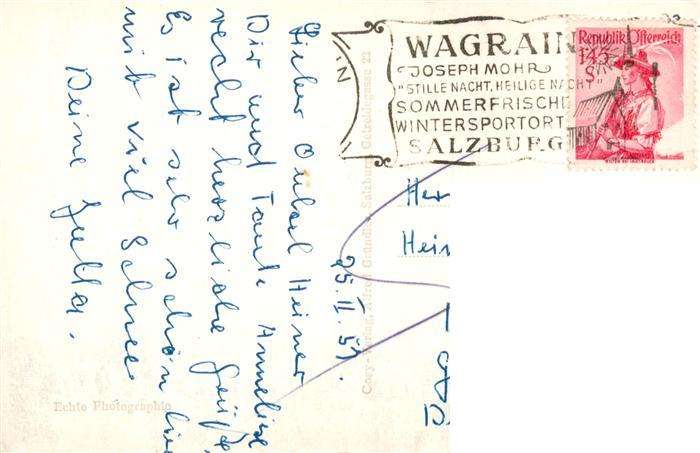 25. II. 57.
Lieber Onkel Heiner
Dir und Tante Anneliese
recht herzliche Grüße
Es ist sehr schön hier
mit viel Schnee
Deine Jutta.
Echte Photographie
Cosy-Verlag, Alfred Gründler, Salzburg, Getreidegasse 22
WAGRAIN
JOSEPH MOHR
"STILLE NACHT, HEILIGE NACHT"
SOMMERFRISCHE
WINTERSPORTORT
SALZBURG
Republik Österreich
1.45
S
Her
Hein